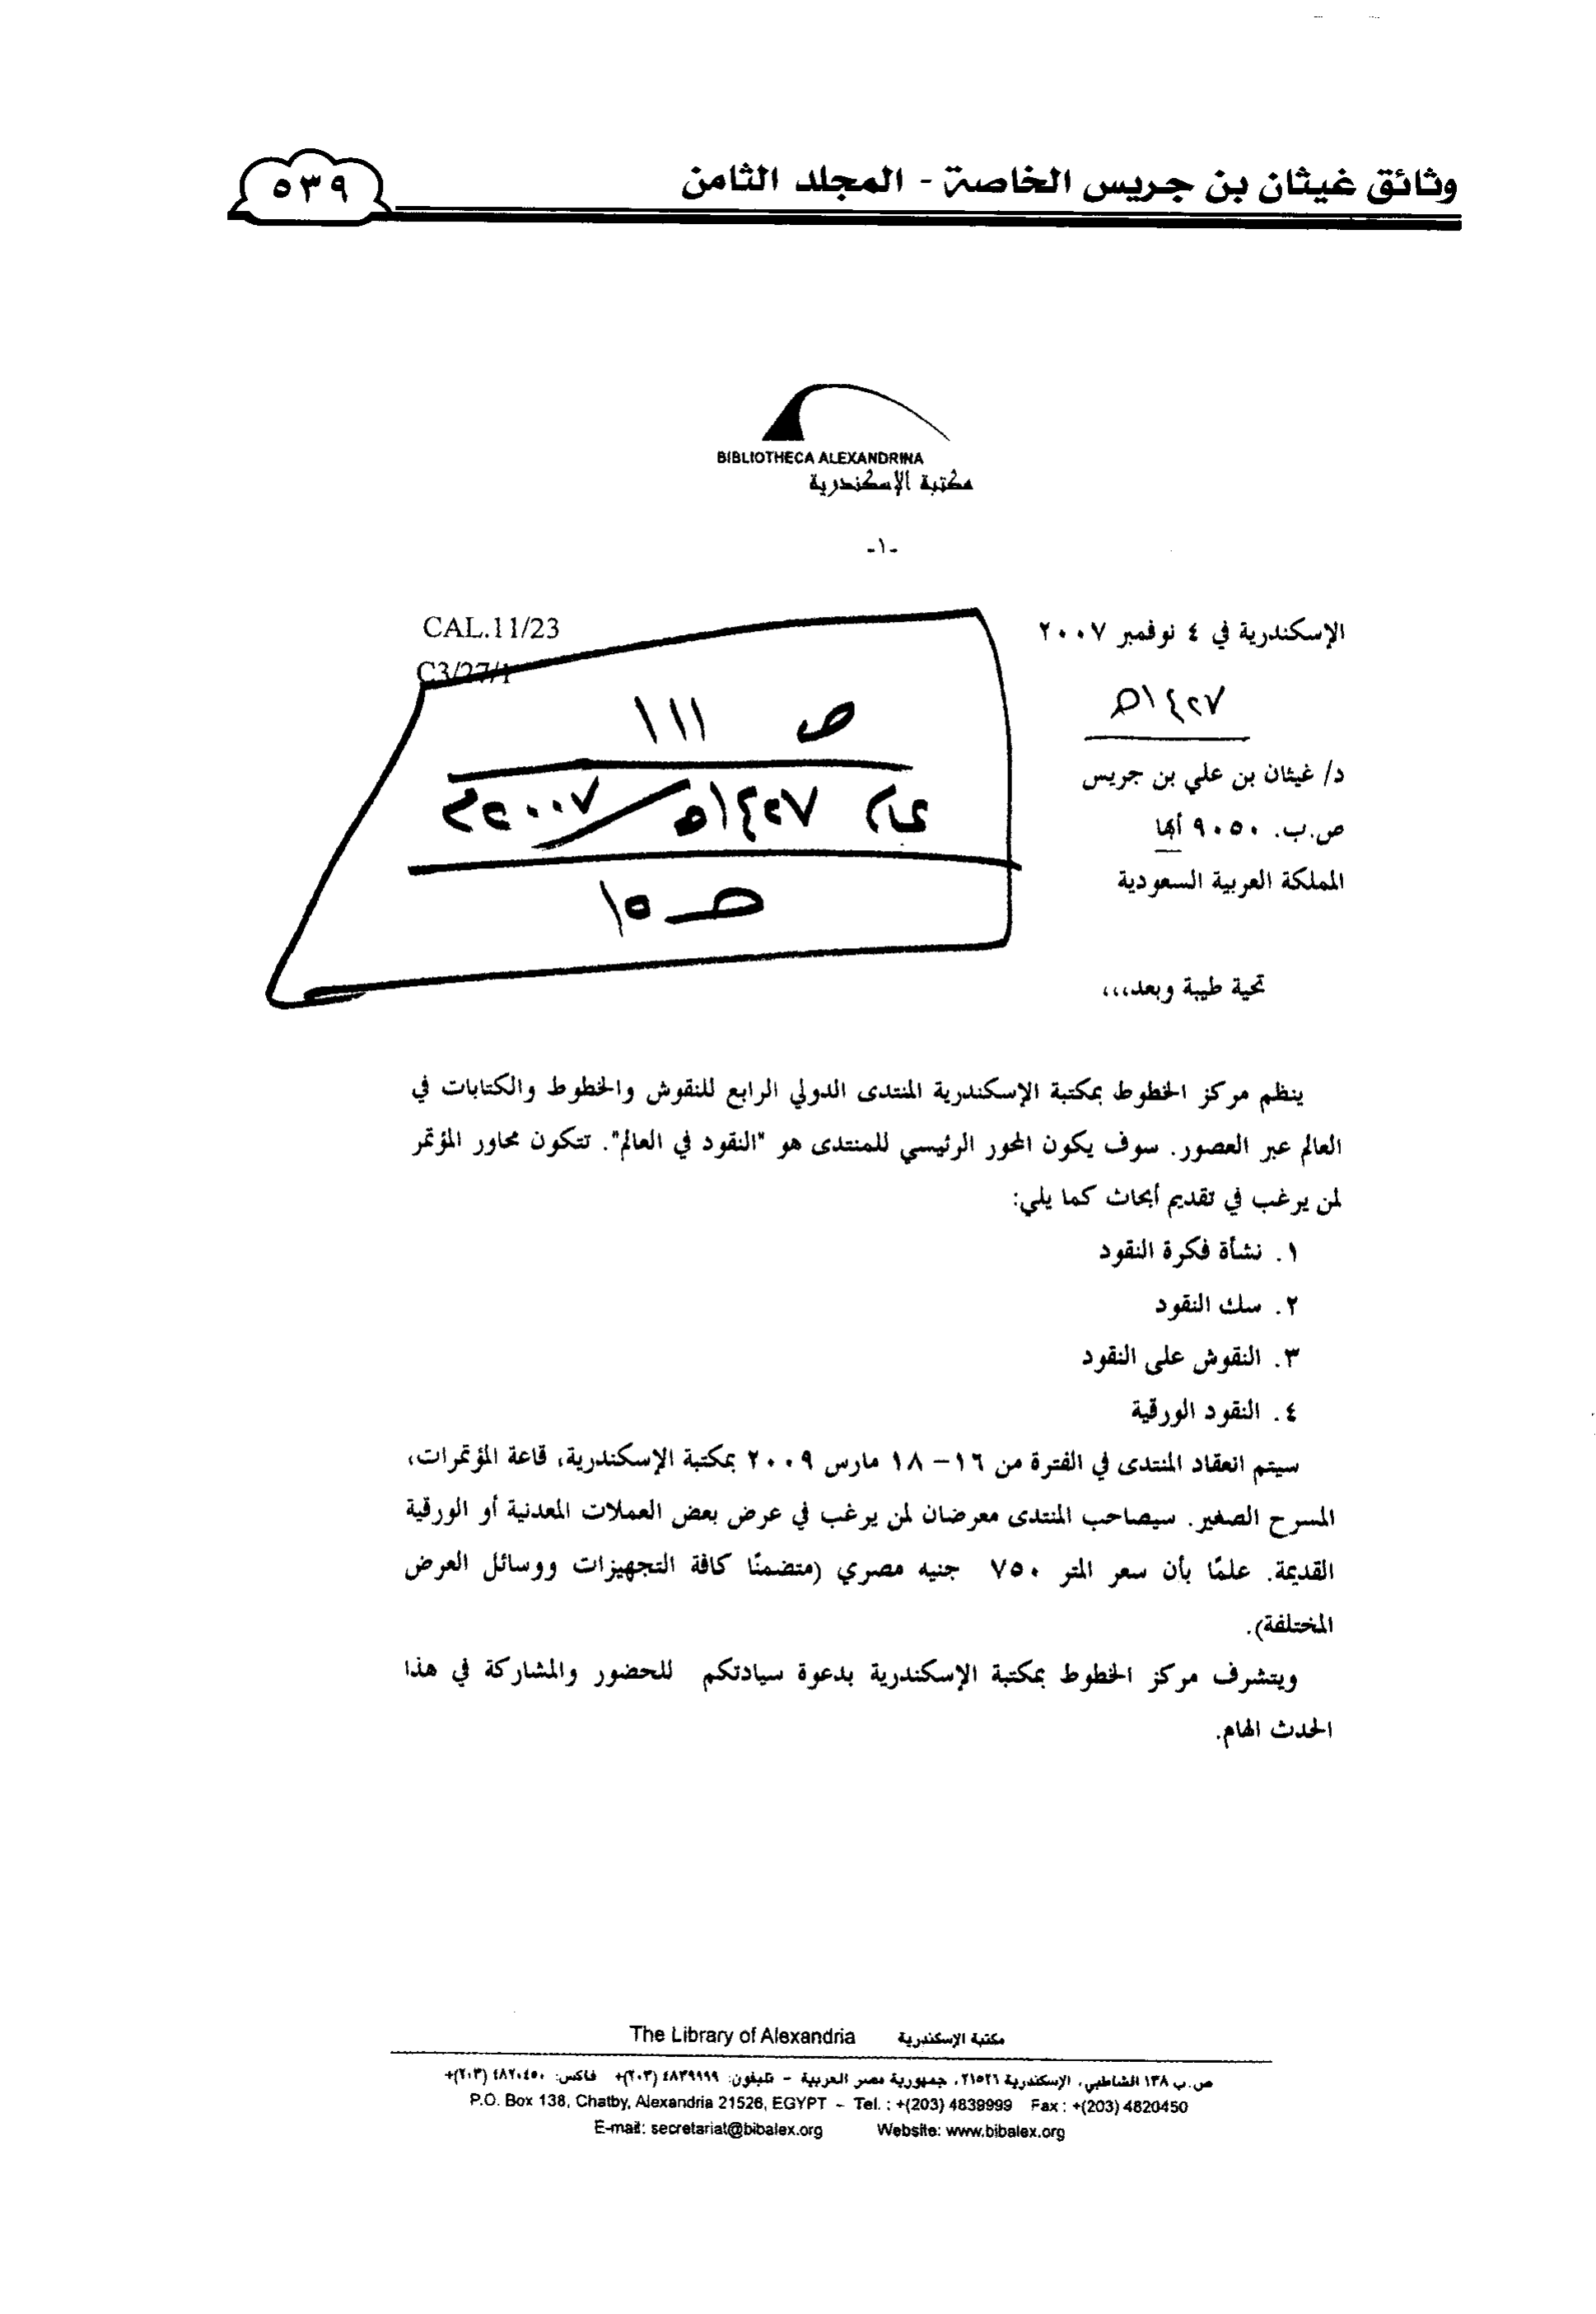 وثائق غيثان بن جريس الخاصة - المجلد الثامن
٥٣٩
BIBLIOTHECA ALEXANDRINA
مكتبة الإسكندرية
-١-
CAL.11/23
C3/27/1
الإسكندرية في ٤ نوفمبر ٢٠٠٧
١٤٢٧هـ
ص ١١١
عام ١٤٢٧هـ/٢٠٠٧م
د/ غيثان بن علي بن جريس
ص.ب. ٩٠٥٠ أبها
المملكة العربية السعودية
تحية طيبة وبعد،،،
ينظم مركز الخطوط بمكتبة الإسكندرية المنتدى الدولي الرابع للنقوش والخطوط والكتابات في
العالم عبر العصور. سوف يكون المحور الرئيسي للمنتدى هو "النقود في العالم". تتكون محاور المؤتمر
لمن يرغب في تقديم أبحاث كما يلي:
١. نشأة فكرة النقود
٢. سك النقود
٣. النقوش على النقود
٤. النقود الورقية
سيتم انعقاد المنتدى في الفترة من ١٦- ١٨ مارس ٢٠٠٩ بمكتبة الإسكندرية، قاعة المؤتمرات،
المسرح الصغير. سيصاحب المنتدى معرضان لمن يرغب في عرض بعض العملات المعدنية أو الورقية
القديمة. علمًا بأن سعر المتر ٧٥٠ جنيه مصري (متضمنًا كافة التجهيزات ووسائل العرض
المختلفة).
ويتشرف مركز الخطوط بمكتبة الإسكندرية بدعوة سيادتكم للحضور والمشاركة في هذا
الحدث الهام.
The Library of Alexandria مكتبة الإسكندرية
ص.ب ١٣٨ الشاطبي، الإسكندرية ٢١٥٢٦، جمهورية مصر العربية - تليفون: ٤٨٣٩٩٩٩ (٢٠٣)+ فاكس: ٤٨٢٠٤٥٠ (٢٠٣)+
P.O. Box 138, Chatby, Alexandria 21526, EGYPT - Tel. : +(203) 4839999 Fax : +(203) 4820450
E-mail: secretariat@bibalex.org Website: www.bibalex.org